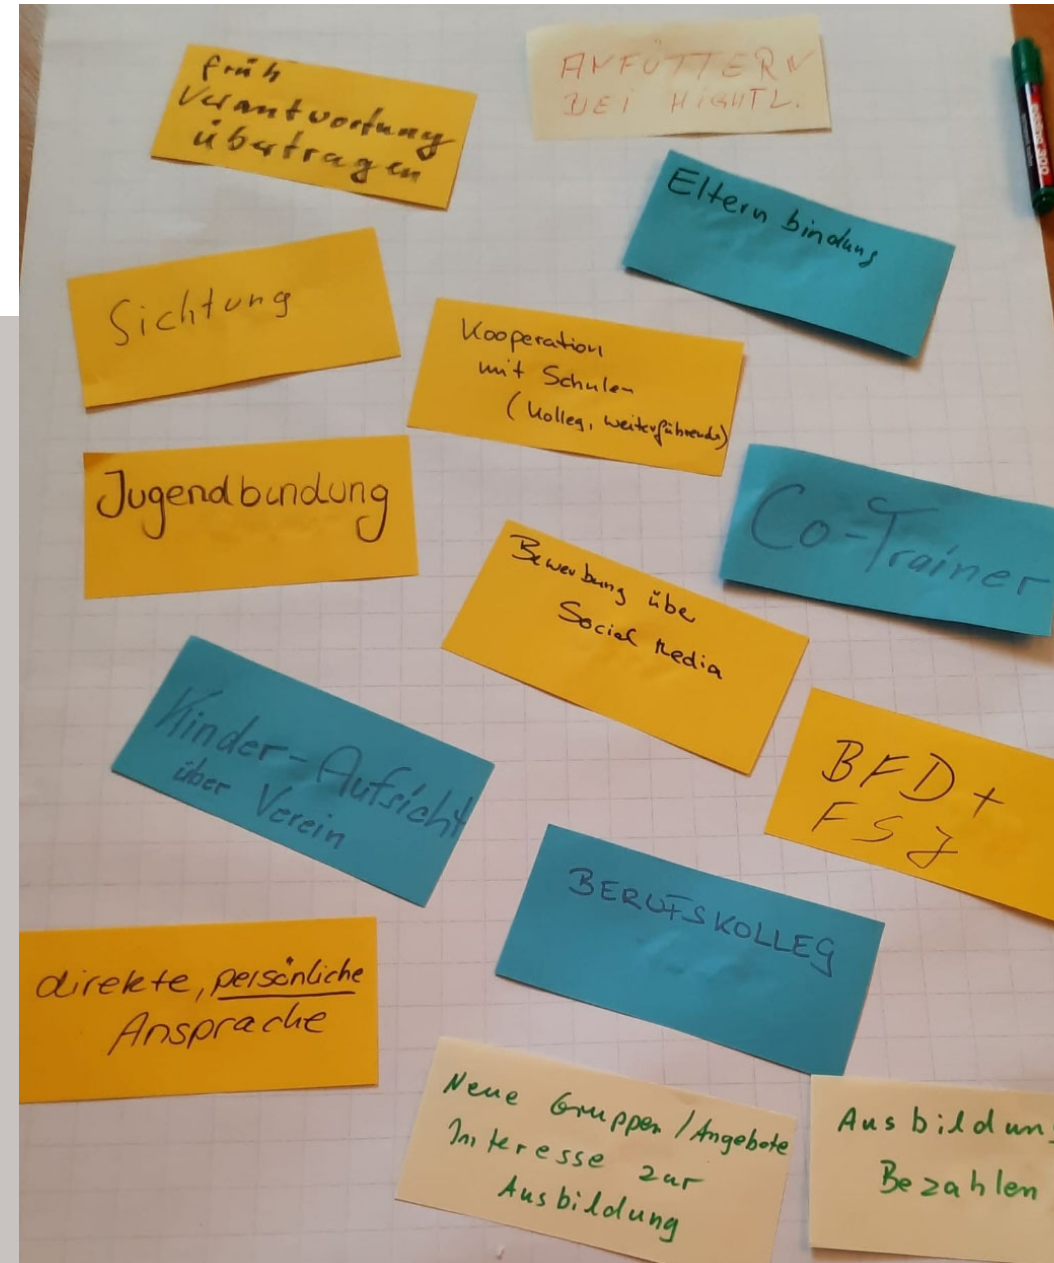 früh
Verantwortung
übertragen
ANFÜTTERN
BEI HIGHTL.
Elternbindung
Sichtung
Kooperation
mit Schulen
(Kolleg, weiterführende)
Jugendbindung
Co-Trainer
Bewerbung über
Social Media
Kinder-Aufsicht
über Verein
BFD +
FSJ
BERUFSKOLLEG
direkte, persönliche
Ansprache
Neue Gruppen/Angebote
Interesse zur
Ausbildung
Ausbildung
Bezahlen